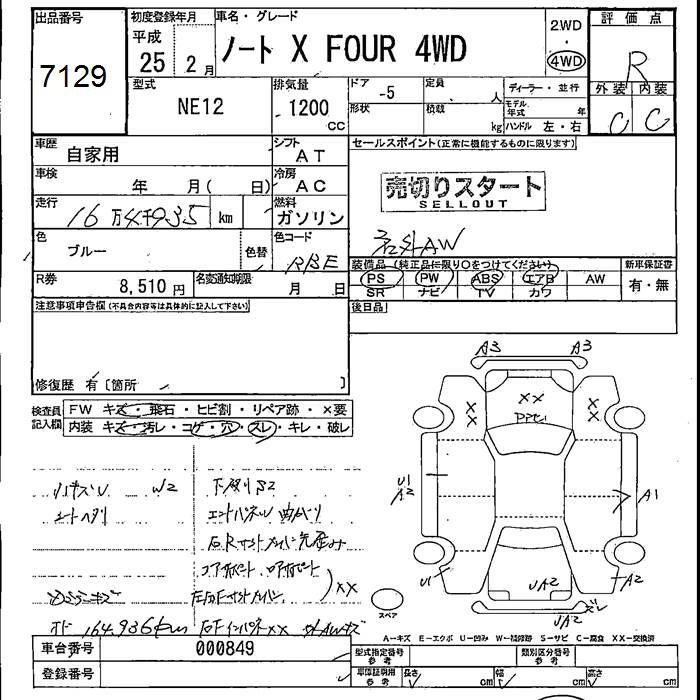 出品番号
7129
初度登録年月
平成
25 2月
車名・グレード
ノート X FOUR 4WD
2WD
・
4WD
評価点
R
型式
NE12
排気量
1200
CC
ドア
-5
形状
定員
人
積載
kg
ディーラー・並行
モデル年式 年
ハンドル 左・右
外装 内装
C C
車歴
自家用
シフト
AT
セールスポイント(正常に機能するものに限ります)
車検
年 月( 日)
冷房
AC
売切りスタート
SELLOUT
走行
16万4千935 km
燃料
ガソリン
社外AW
色
ブルー
色替
色コード
RBE
装備品(純正品に限り○をつけてください)
新車保証書
PS PW ABS エアB AW
SR ナビ TV カワ
有・無
R券
8,510円
名変通知期限
月 日
後日品
注意事項申告欄(不具合内容等は具体的に記入して下さい)
修復歴 有〔箇所 〕
検査員
記入欄
FW キズ・飛石・ヒビ割・リペア跡・×要
内装 キズ・汚レ・コゲ・穴・スレ・キレ・破レ
W2
下廻りS2
エンドパネル曲がり
コアサポート
XX
164,936km
XX
A3 A3
XX
XX
XX
U1
A2
A1
U1
A2
UA2
UA2
ズレ
スペア
A-キズ E-エクボ U-凹み W-補修跡 S-サビ C-腐食 XX-交換済
車台番号
000849
登録番号
型式指定番号
参考
類別区分番号
参考
車庫証明用
参考
長さ cm
幅 cm
高さ cm